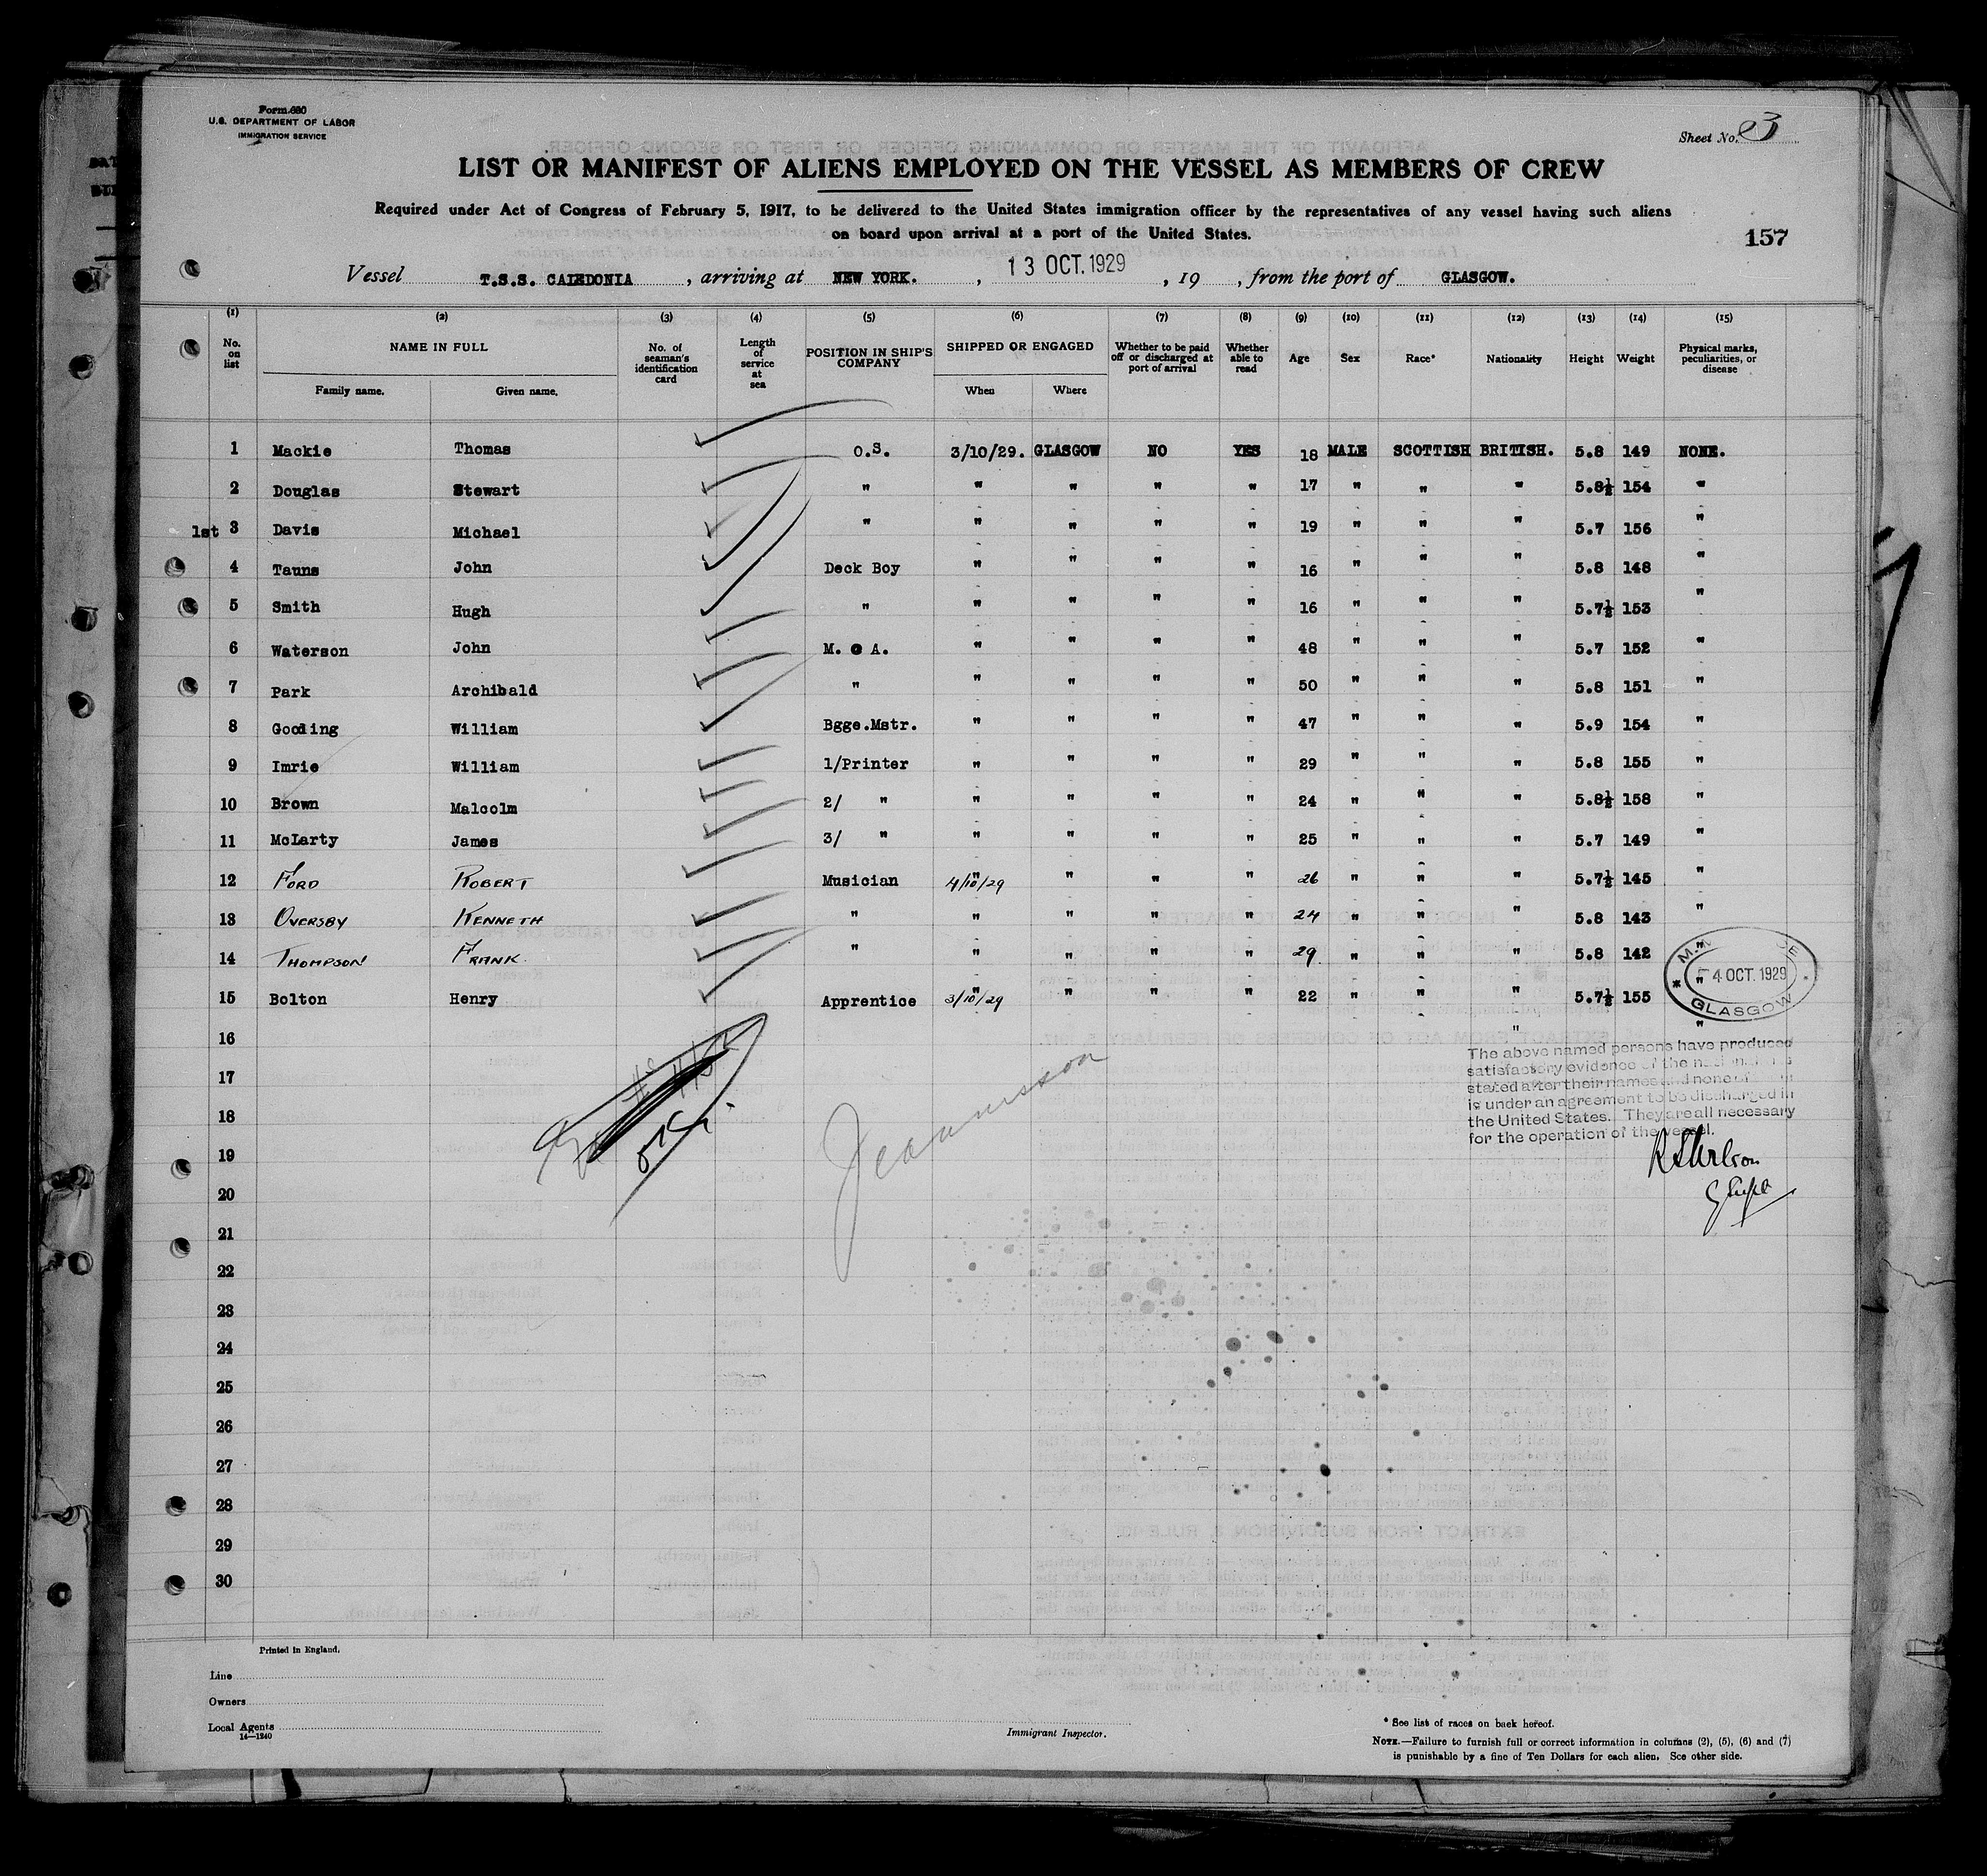 Form 680
U.S. DEPARTMENT OF LABOR
IMMIGRATION SERVICE
Sheet No. 3
LIST OR MANIFEST OF ALIENS EMPLOYED ON THE VESSEL AS MEMBERS OF CREW
Required under Act of Congress of February 5, 1917, to be delivered to the United States immigration officer by the representatives of any vessel having such aliens
on board upon arrival at a port of the United States.
157
Vessel T.S.S. CALEDONIA , arriving at NEW YORK. , 13 OCT. 1929 , 19 , from the port of GLASGOW.
(1) (2) (3) (4) (5) (6) (7) (8) (9) (10) (11) (12) (13) (14) (15)
No. on list NAME IN FULL Family name. Given name. No. of seaman's identification card Length of service at sea POSITION IN SHIP'S COMPANY SHIPPED OR ENGAGED When Where Whether to be paid off or discharged at port of arrival Whether able to read Age Sex Race* Nationality Height Weight Physical marks, peculiarities, or disease
1 Mackie Thomas O.S. 3/10/29. GLASGOW NO YES 18 MALE SCOTTISH BRITISH. 5.8 149 NONE.
2 Douglas Stewart " " " " " 17 " " " 5.8½ 154 "
1st 3 Davis Michael " " " " " 19 " " " 5.7 156 "
4 Tauns John Deck Boy " " " " 16 " " " 5.8 148 "
5 Smith Hugh " " " " " 16 " " " 5.7½ 153 "
6 Waterson John M. @ A. " " " " 48 " " " 5.7 152 "
7 Park Archibald " " " " " 50 " " " 5.8 151 "
8 Gooding William Bgge.Mstr. " " " " 47 " " " 5.9 154 "
9 Imrie William 1/Printer " " " " 29 " " " 5.8 155 "
10 Brown Malcolm 2/ " " " " " 24 " " " 5.8½ 158 "
11 McLarty James 3/ " " " " " 25 " " " 5.7 149 "
12 FORD ROBERT Musician 4/10/29 " " " 26 " " " 5.7½ 145 "
13 OVERSBY KENNETH " " " " " 24 " " " 5.8 143 "
14 THOMPSON FRANK " " " " " 29 " " " 5.8 142 "
15 Bolton Henry Apprentice 3/10/29 " " " 22 " " " 5.7½ 155 "
4 OCT. 1929
GLASGOW
16 " "
17
18
19
20
21
22
23
24
25
26
27
28
29
30
The above named persons have produced
satisfactory evidence of the
stated after their names and none of
is under an agreement to be discharged in
the United States. They are all necessary
for the operation of the vessel.
Printed in England.
Line
Owners
Local Agents
14—1240
Immigrant Inspector.
* See list of races on back hereof.
NOTE.—Failure to furnish full or correct information in columns (2), (5), (6) and (7)
is punishable by a fine of Ten Dollars for each alien. See other side.